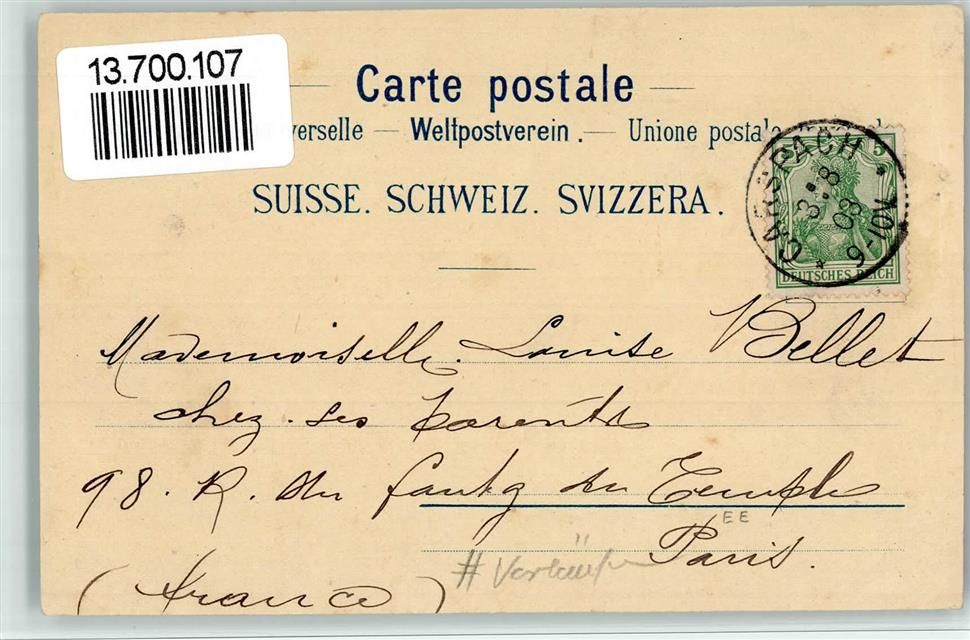 13.700.107
Carte postale
verselle — Weltpostverein. — Unione postal
SUISSE. SCHWEIZ. SVIZZERA.
CARSPACH
3.8
03
6-10V
5
DEUTSCHES REICH
Mademoiselle. Louise Bellet
chez. ses parents
98. R. du faubg du Temple
EE
Paris.
# Vorläufer
(France)